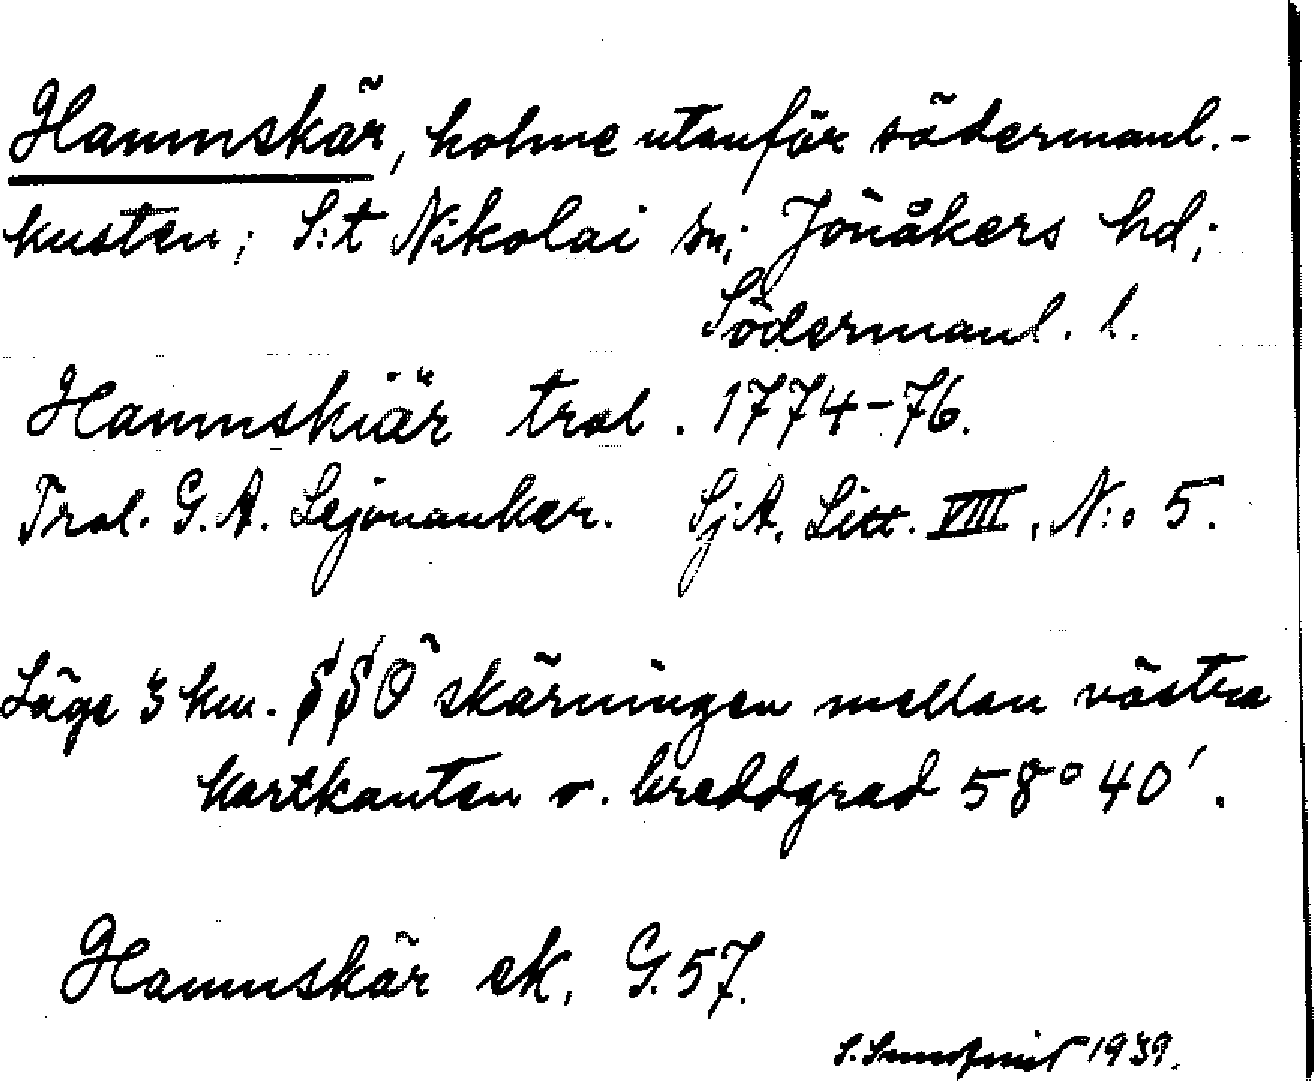 Hamnskär, holme utanför södermanl.-
kusten; S:t Nikolai sn; Jönåkers hd;
Södermanl. l.
Hamnskiär trol. 1774-76.
Trol. G. A. Lejonanker. Sj.A. Litt. VIII, N:o 5.
Läge 3 km. SSO skärningen mellan västra
kartkanten o. breddgrad 58° 40'.
Hamnskär ek. G. 57.
S. Sundqvist 1939.